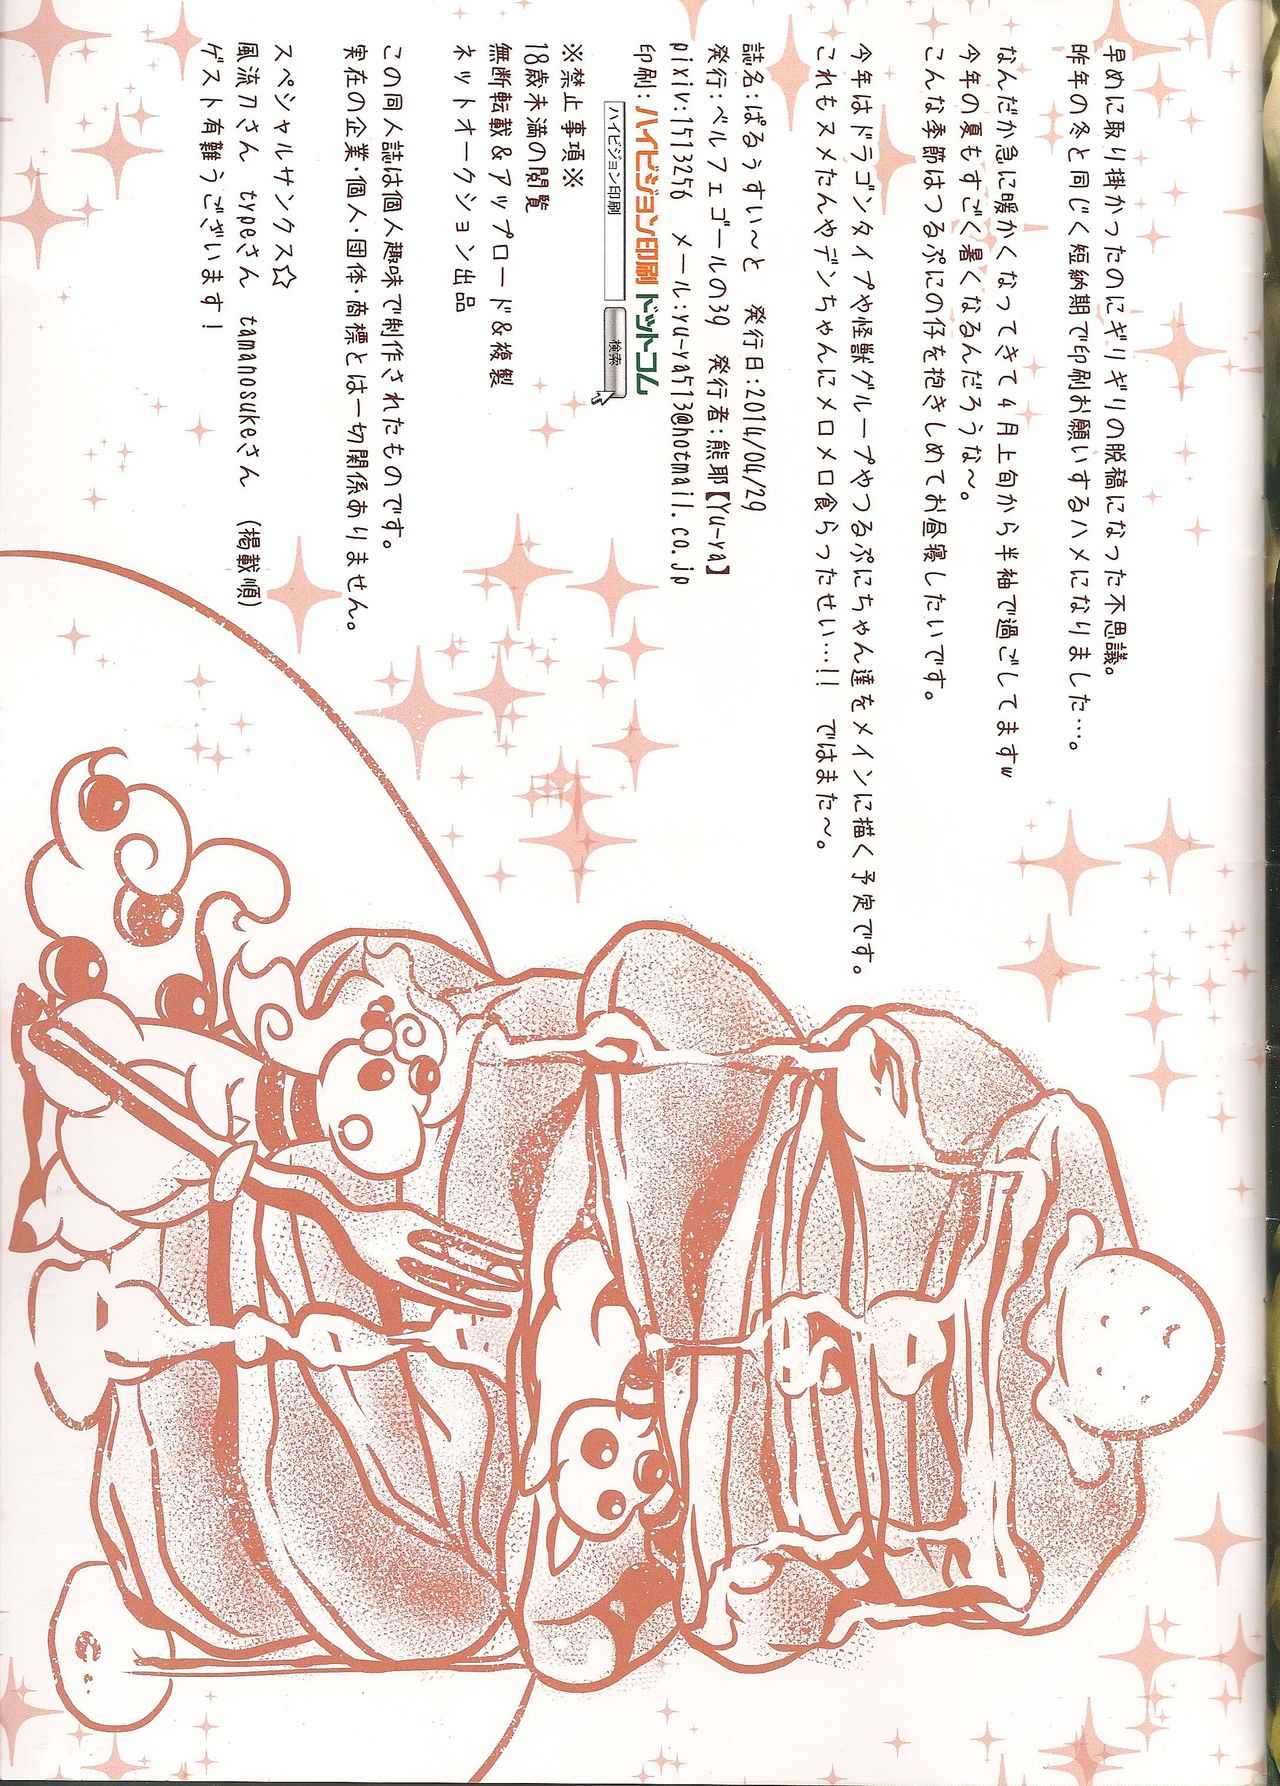 早めに取り掛かったのにギリギリの脱稿になった不思議。
昨年の冬と同じく短納期で印刷お願いするハメになりました…。
なんだか急に暖かくなってきて4月上旬から半袖で過ごしてますw
今年の夏もすごく暑くなるんだろうな～。
こんな季節はつるぷにの仔を抱きしめてお昼寝したいです。
今年はドラゴンタイプや怪獣グループやつるぷにちゃん達をメインに描く予定です。
これもヌメたんやデンちゃんにメロメロ食らったせい…!! ではまた～。
誌名:ぱるぅすい～と 発行日:2014/04/29
発行:ベルフェゴールの39 発行者:熊耶【Yu-ya】
pixiv:1513256 メール:yu-ya513@hotmail.co.jp
印刷:ハイビジョン印刷ドットコム
ハイビジョン印刷 検索
※禁止事項※
18歳未満の閲覧
無断転載&アップロード&複製
ネットオークション出品
この同人誌は個人趣味で制作されたものです。
実在の企業・個人・団体・商標とは一切関係ありません。
スペシャルサンクス☆
風流刀さん typeさん tamanosukeさん (掲載順)
ゲスト有難うございます!